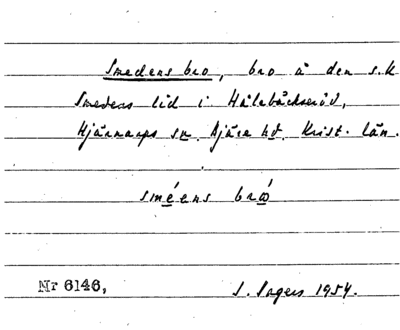 Smedens bro, bro å den s.k
Smedens lid i Hålebäckseröd,
Hjärnarps sn. Bjäre hd. Krist. län.
sméens bro
Nr 6146,
1954.